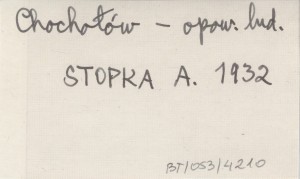 Chochołów - opow. lud.
STOPKA A. 1932
BT/053/4210